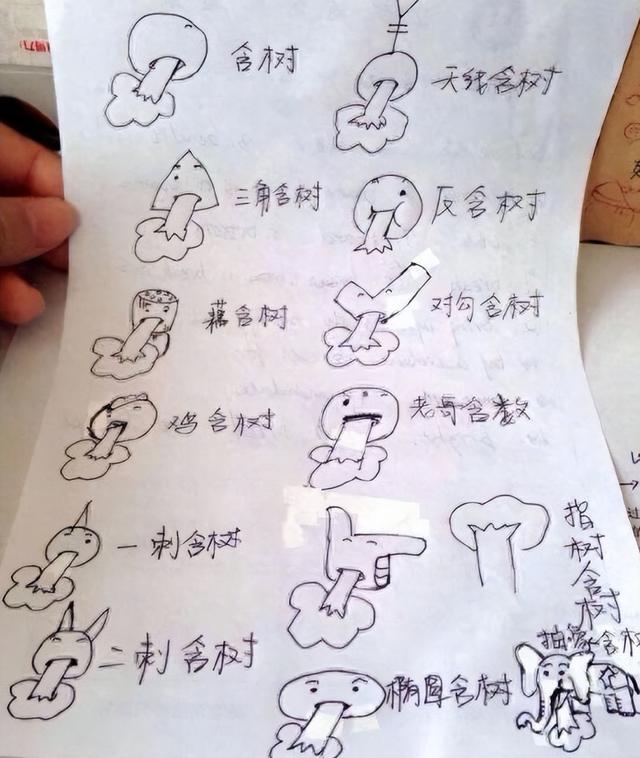 含树
天线含树
三角含树
反含树
藕含树
对勾含树
鸡含树
老哥含数
一刺含树
指树含树
二刺含树
椭圆含树
抽象含树